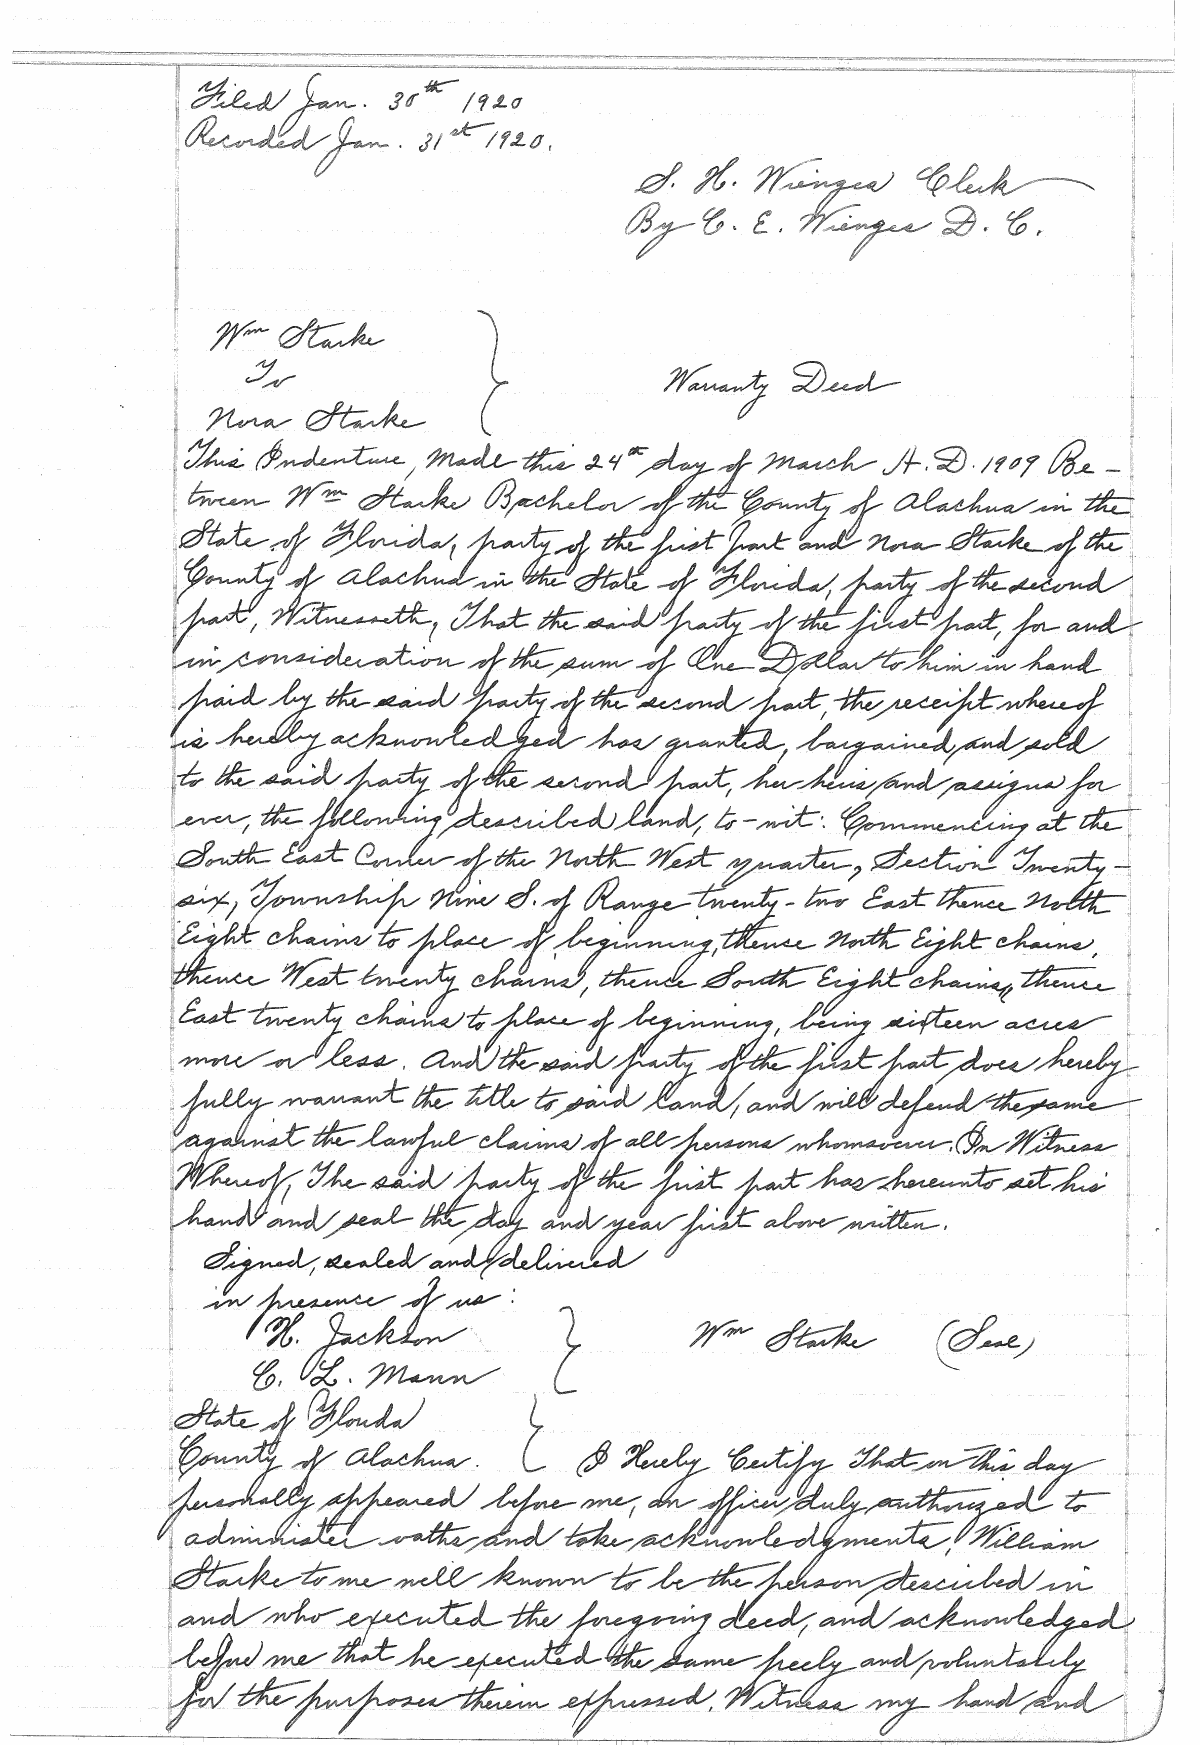 Filed Jan. 30th 1920
Recorded Jan. 31st 1920.
S. H. Wienges Clerk
By C. E. Wienges D. C.
Wm Starke
To
Warranty Deed
Nora Starke
This Indenture, Made this 24th day of March A. D. 1909 Be-
tween Wm Starke Bachelor of the County of Alachua in the
State of Florida, party of the first part and Nora Starke of the
County of Alachua in the State of Florida, party of the second
part, Witnesseth, That the said party of the first part, for and
in consideration of the sum of One Dollar to him in hand
paid by the said party of the second part, the receipt whereof
is hereby acknowledged has granted, bargained and sold
to the said party of the second part, her heirs and assigns for
ever, the following described land, to-wit: Commencing at the
South East Corner of the North West quarter, Section Twenty-
six, Township Nine S. of Range twenty-two East thence North
Eight chains to place of beginning, thence North Eight chains,
thence West twenty chains, thence South Eight chains, thence
East twenty chains to place of beginning, being sixteen acres
more or less. And the said party of the first part does hereby
fully warrant the title to said land, and will defend the same
against the lawful claims of all persons whomsoever. In Witness
Whereof, The said party of the first part has hereunto set his
hand and seal the day and year first above written.
Signed, sealed and delivered
in presence of us:
H. Jackson
Wm Starke (Seal)
C. L. Mann
State of Florida
County of Alachua. I Hereby Certify That on this day
personally appeared before me, an officer duly authorized to
administer oaths and take acknowledgments, William
Starke to me well known to be the person described in
and who executed the foregoing deed, and acknowledged
before me that he executed the same freely and voluntarily
for the purposes therein expressed. Witness my hand and